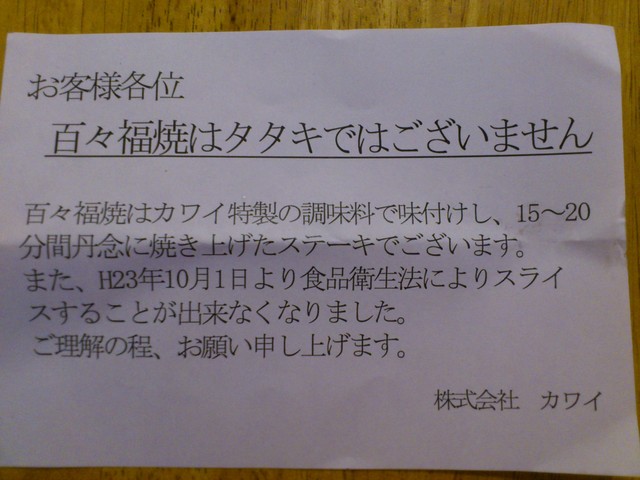 お客様各位
百々福焼はタタキではございません
百々福焼はカワイ特製の調味料で味付けし、15～20
分間丹念に焼き上げたステーキでございます。
また、H23年10月1日より食品衛生法によりスライ
スすることが出来なくなりました。
ご理解の程、お願い申し上げます。
株式会社　カワイ